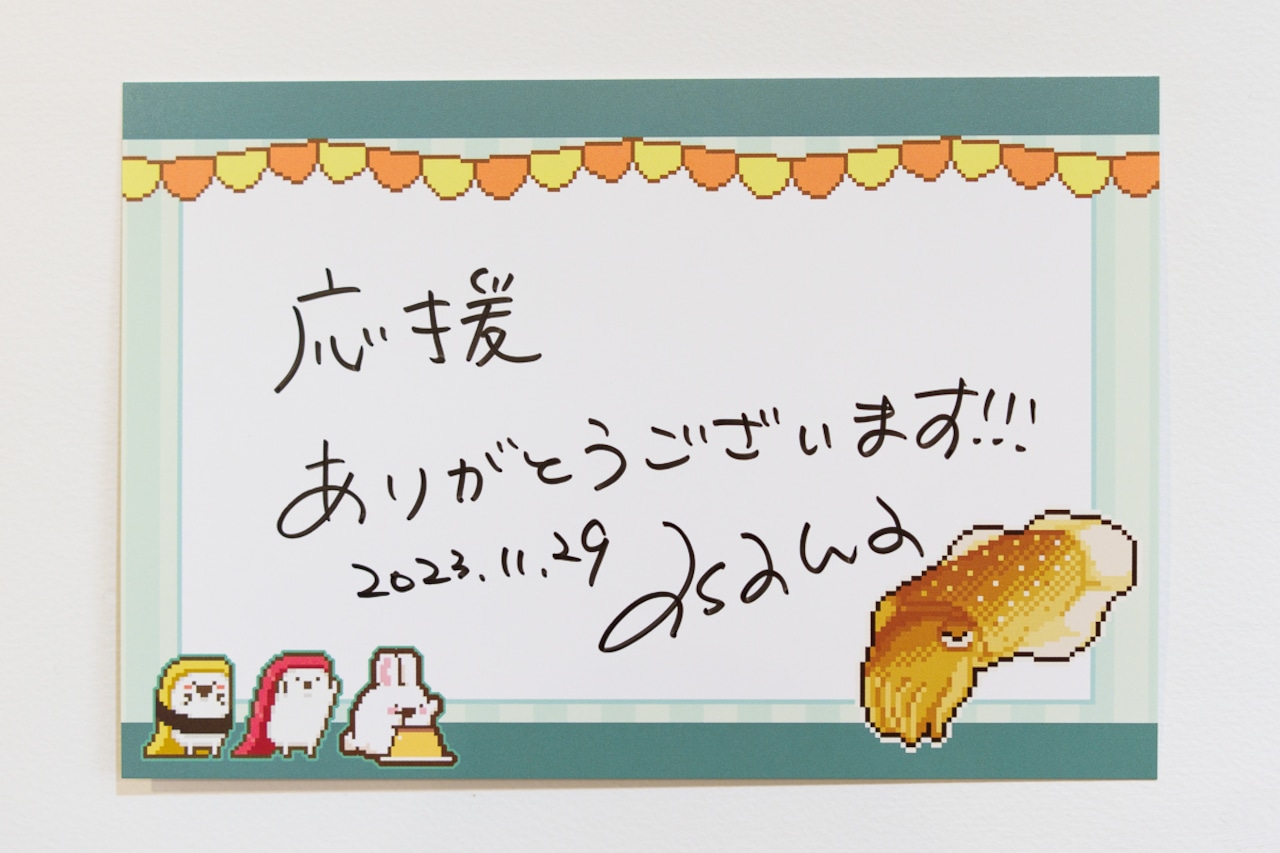 応援
ありがとうございます!!!
2023.11.29 asana